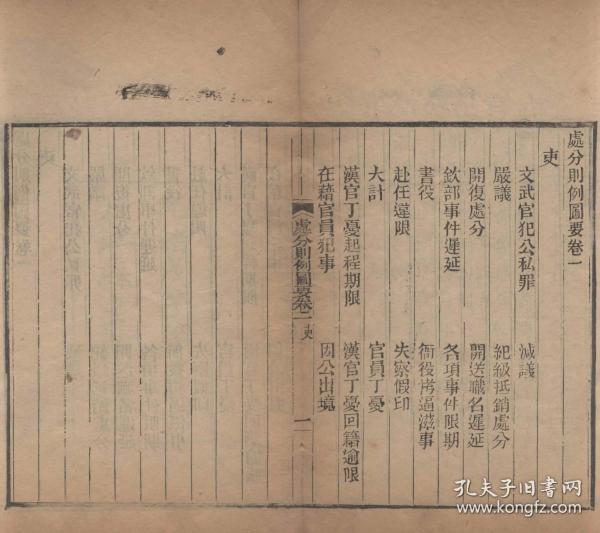 處分則例圖要卷一
吏
文武官犯公私罪 減議
嚴議 紀級抵銷處分
開復處分 開送職名遲延
欽部事件遲延 各項事件限期
書役 衙役拷逼滋事
赴任違限 失察假印
大計 官員丁憂
漢官丁憂起程期限 漢官丁憂回籍逾限
在籍官員犯事 因公出境
處分則例圖要卷一 吏 一
孔夫子旧书网
www.kongfz.com